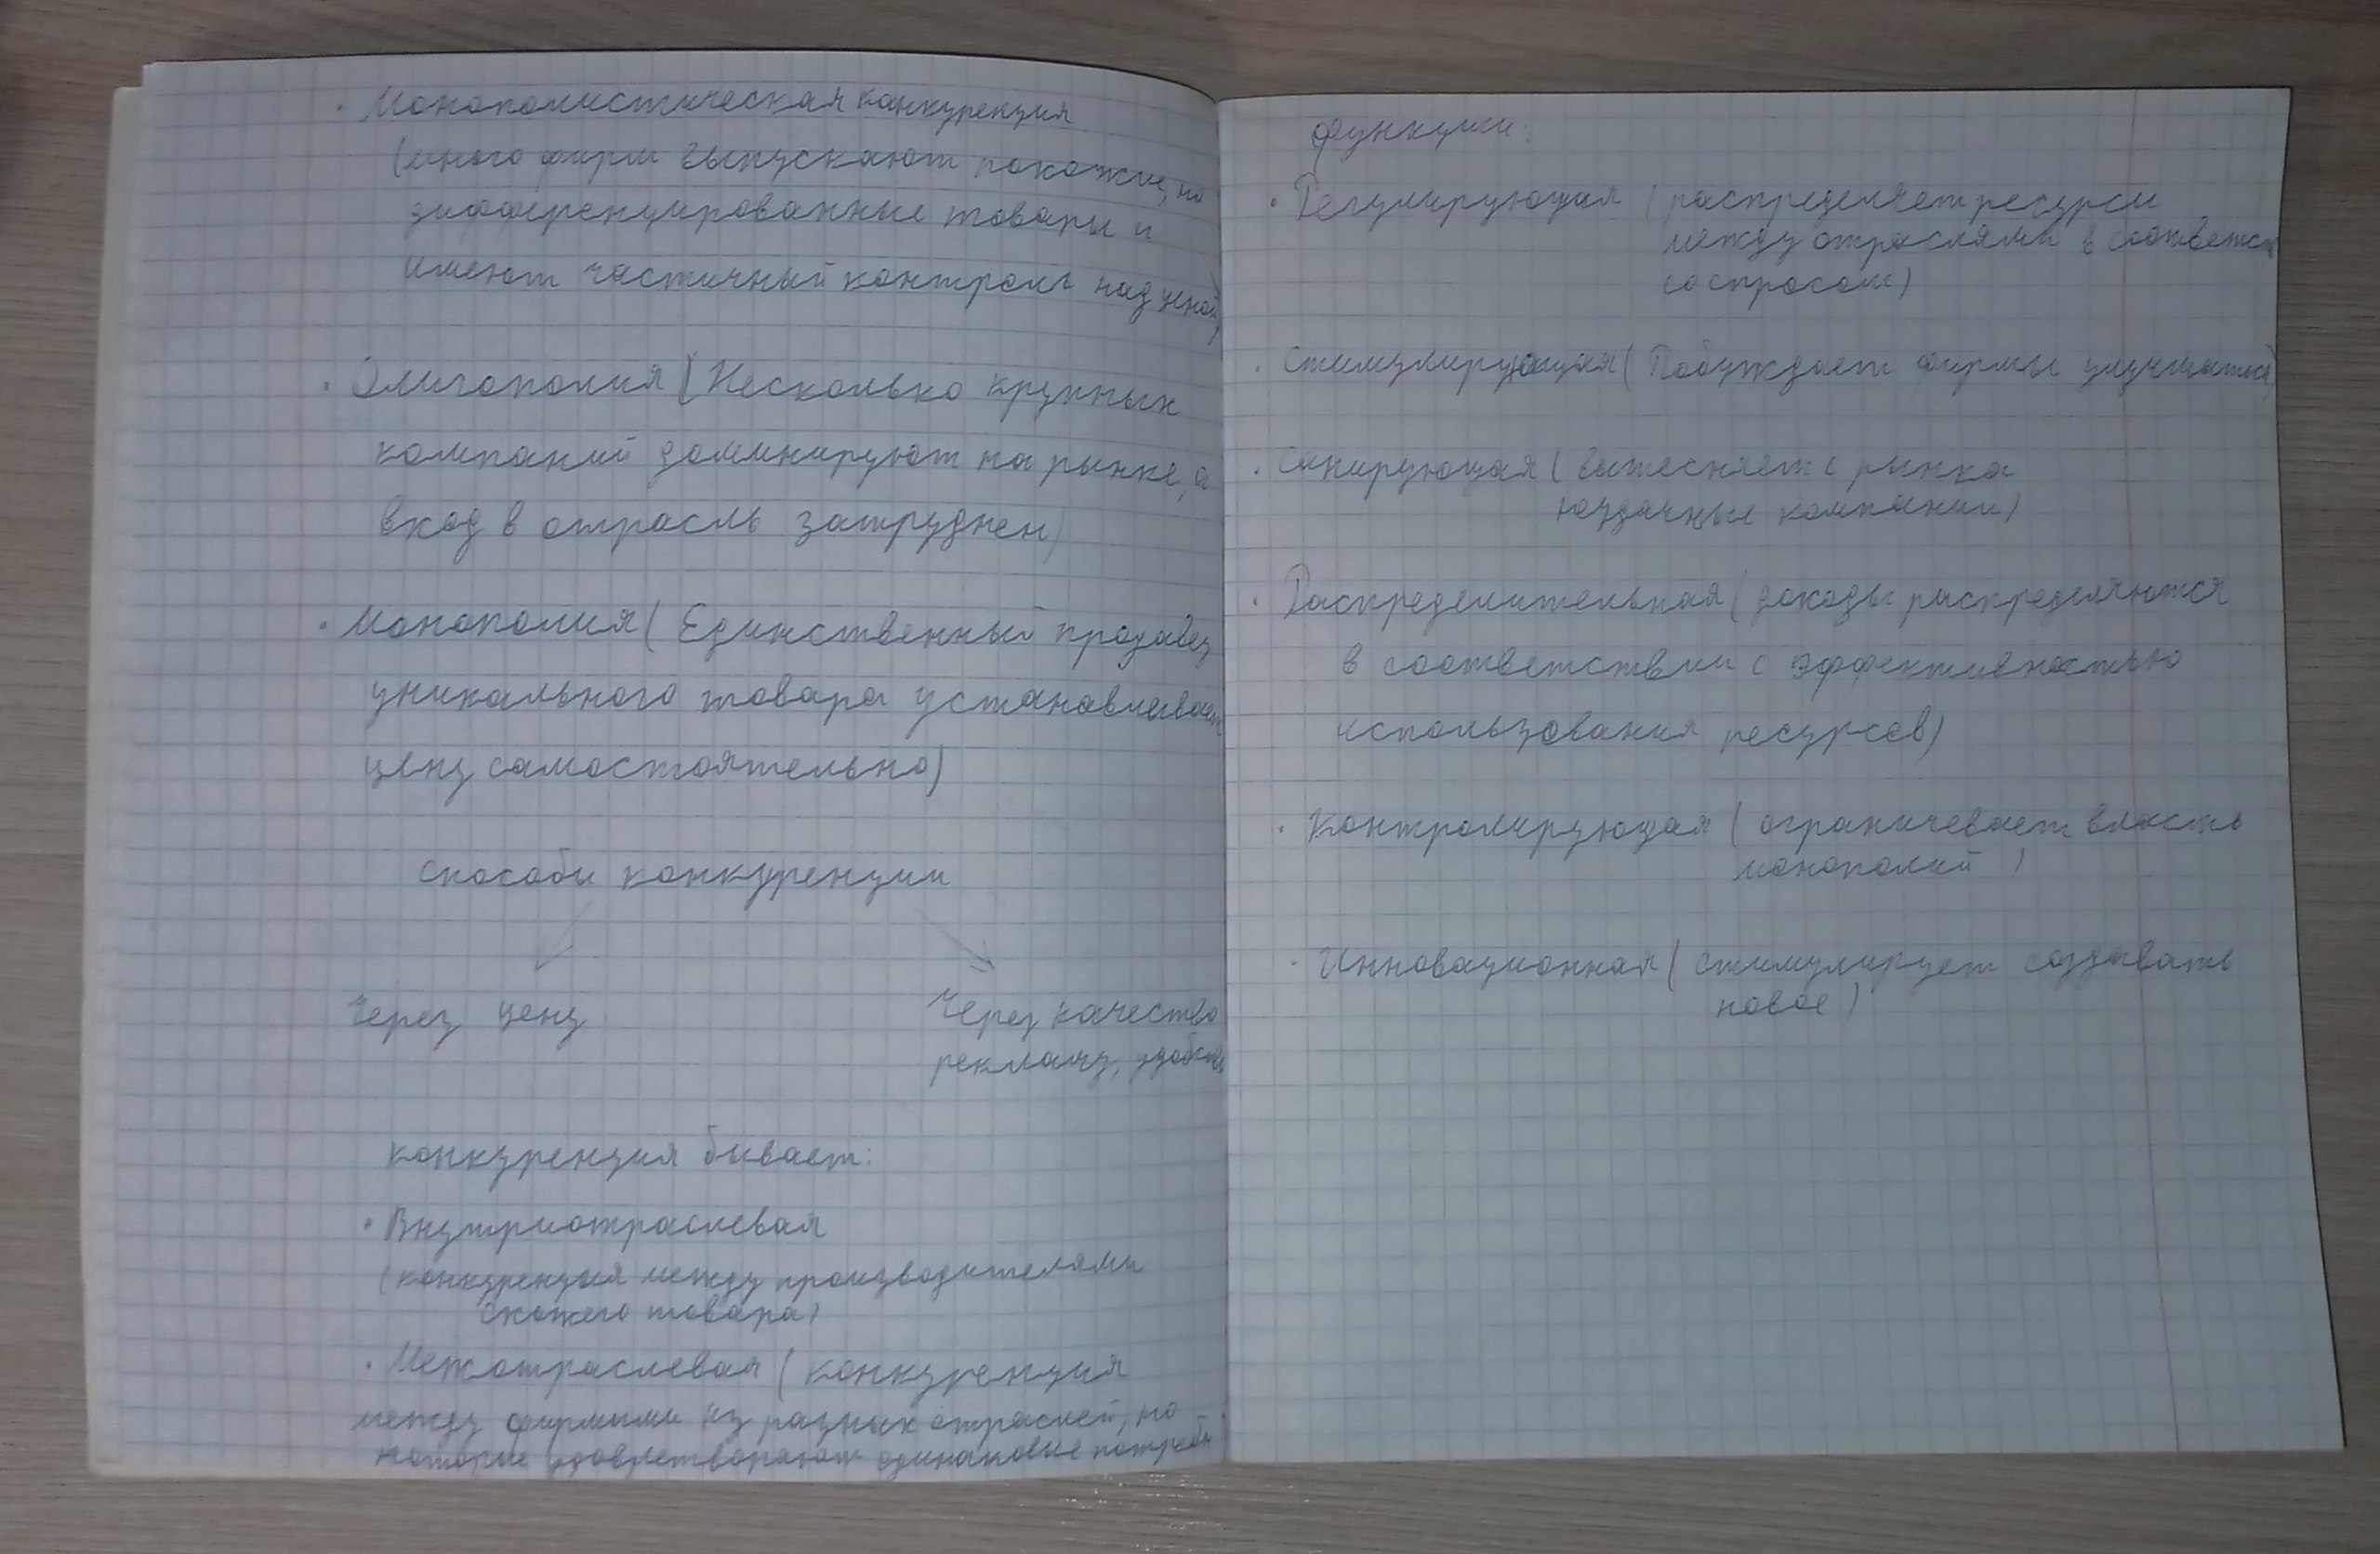 · Монополистическая конкуренция
(много фирм выпускают похожие, но
дифференцированные товары и
имеют частичный контроль над ценой)
· Олигополия (Несколько крупных
компаний доминируют на рынке, а
вход в отрасль затруднен)
· Монополия (Единственный продавец
уникального товара устанавливает
цену самостоятельно)
способы конкуренции
Через цену
Через качество
рекламу, удобство
конкуренция бывает:
· Внутриотраслевая
(конкуренция между производителями
схожего товара)
· Межотраслевая (конкуренция
между фирмами из разных отраслей, но
которые удовлетворяют одинаковые потребн
функции:
· Регулирующая (распределяет ресурсы
между отраслями в соответст
со спросом)
· Стимулирующая (Побуждает фирмы улучшаться)
· Санирующая (вытесняет с рынка
неудачные компании)
· Распределительная (доходы распределяются
в соответствии с эффективностью
использования ресурсов)
· Контролирующая (ограничевает власть
монополий)
· Инновационная (стимулирует создавать
новое)